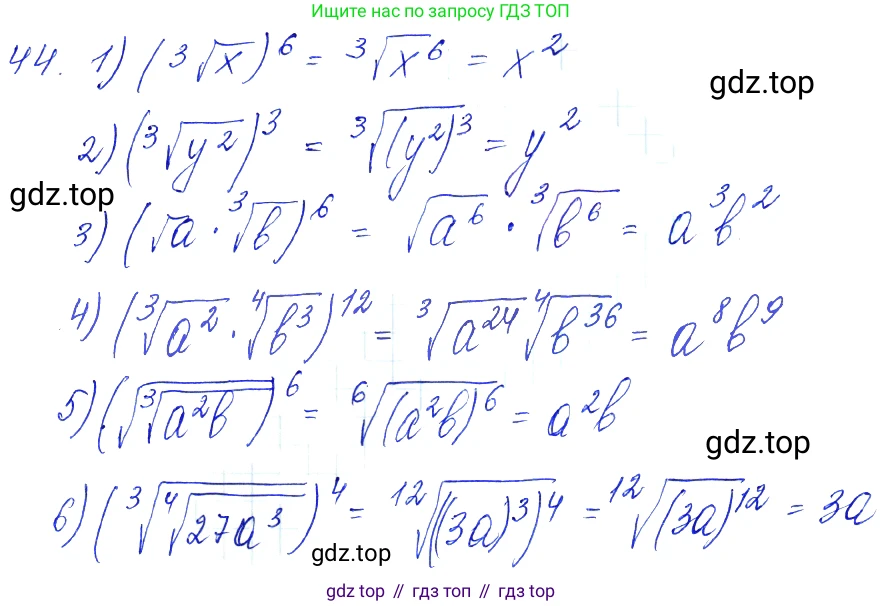 Ищите нас по запросу ГДЗ ТОП
44. 1) (³√x)⁶ = ³√x⁶ = x²
gdz.top
2) (³√y²)³ = ³√(y²)³ = y²
gdz.top
3) (√a · ³√b)⁶ = √a⁶ · ³√b⁶ = a³b²
4) (³√a² · ⁴√b³)¹² = ³√a²⁴ ⁴√b³⁶ = a⁸b⁹
5) (√³√a²b)⁶ = ⁶√(a²b)⁶ = a²b
gdz.top
6) (³√⁴√27a³)⁴ = ¹²√((3a)³)⁴ = ¹²√(3a)¹² = 3a
gdz.top
gdz top // гдз топ // gdz top